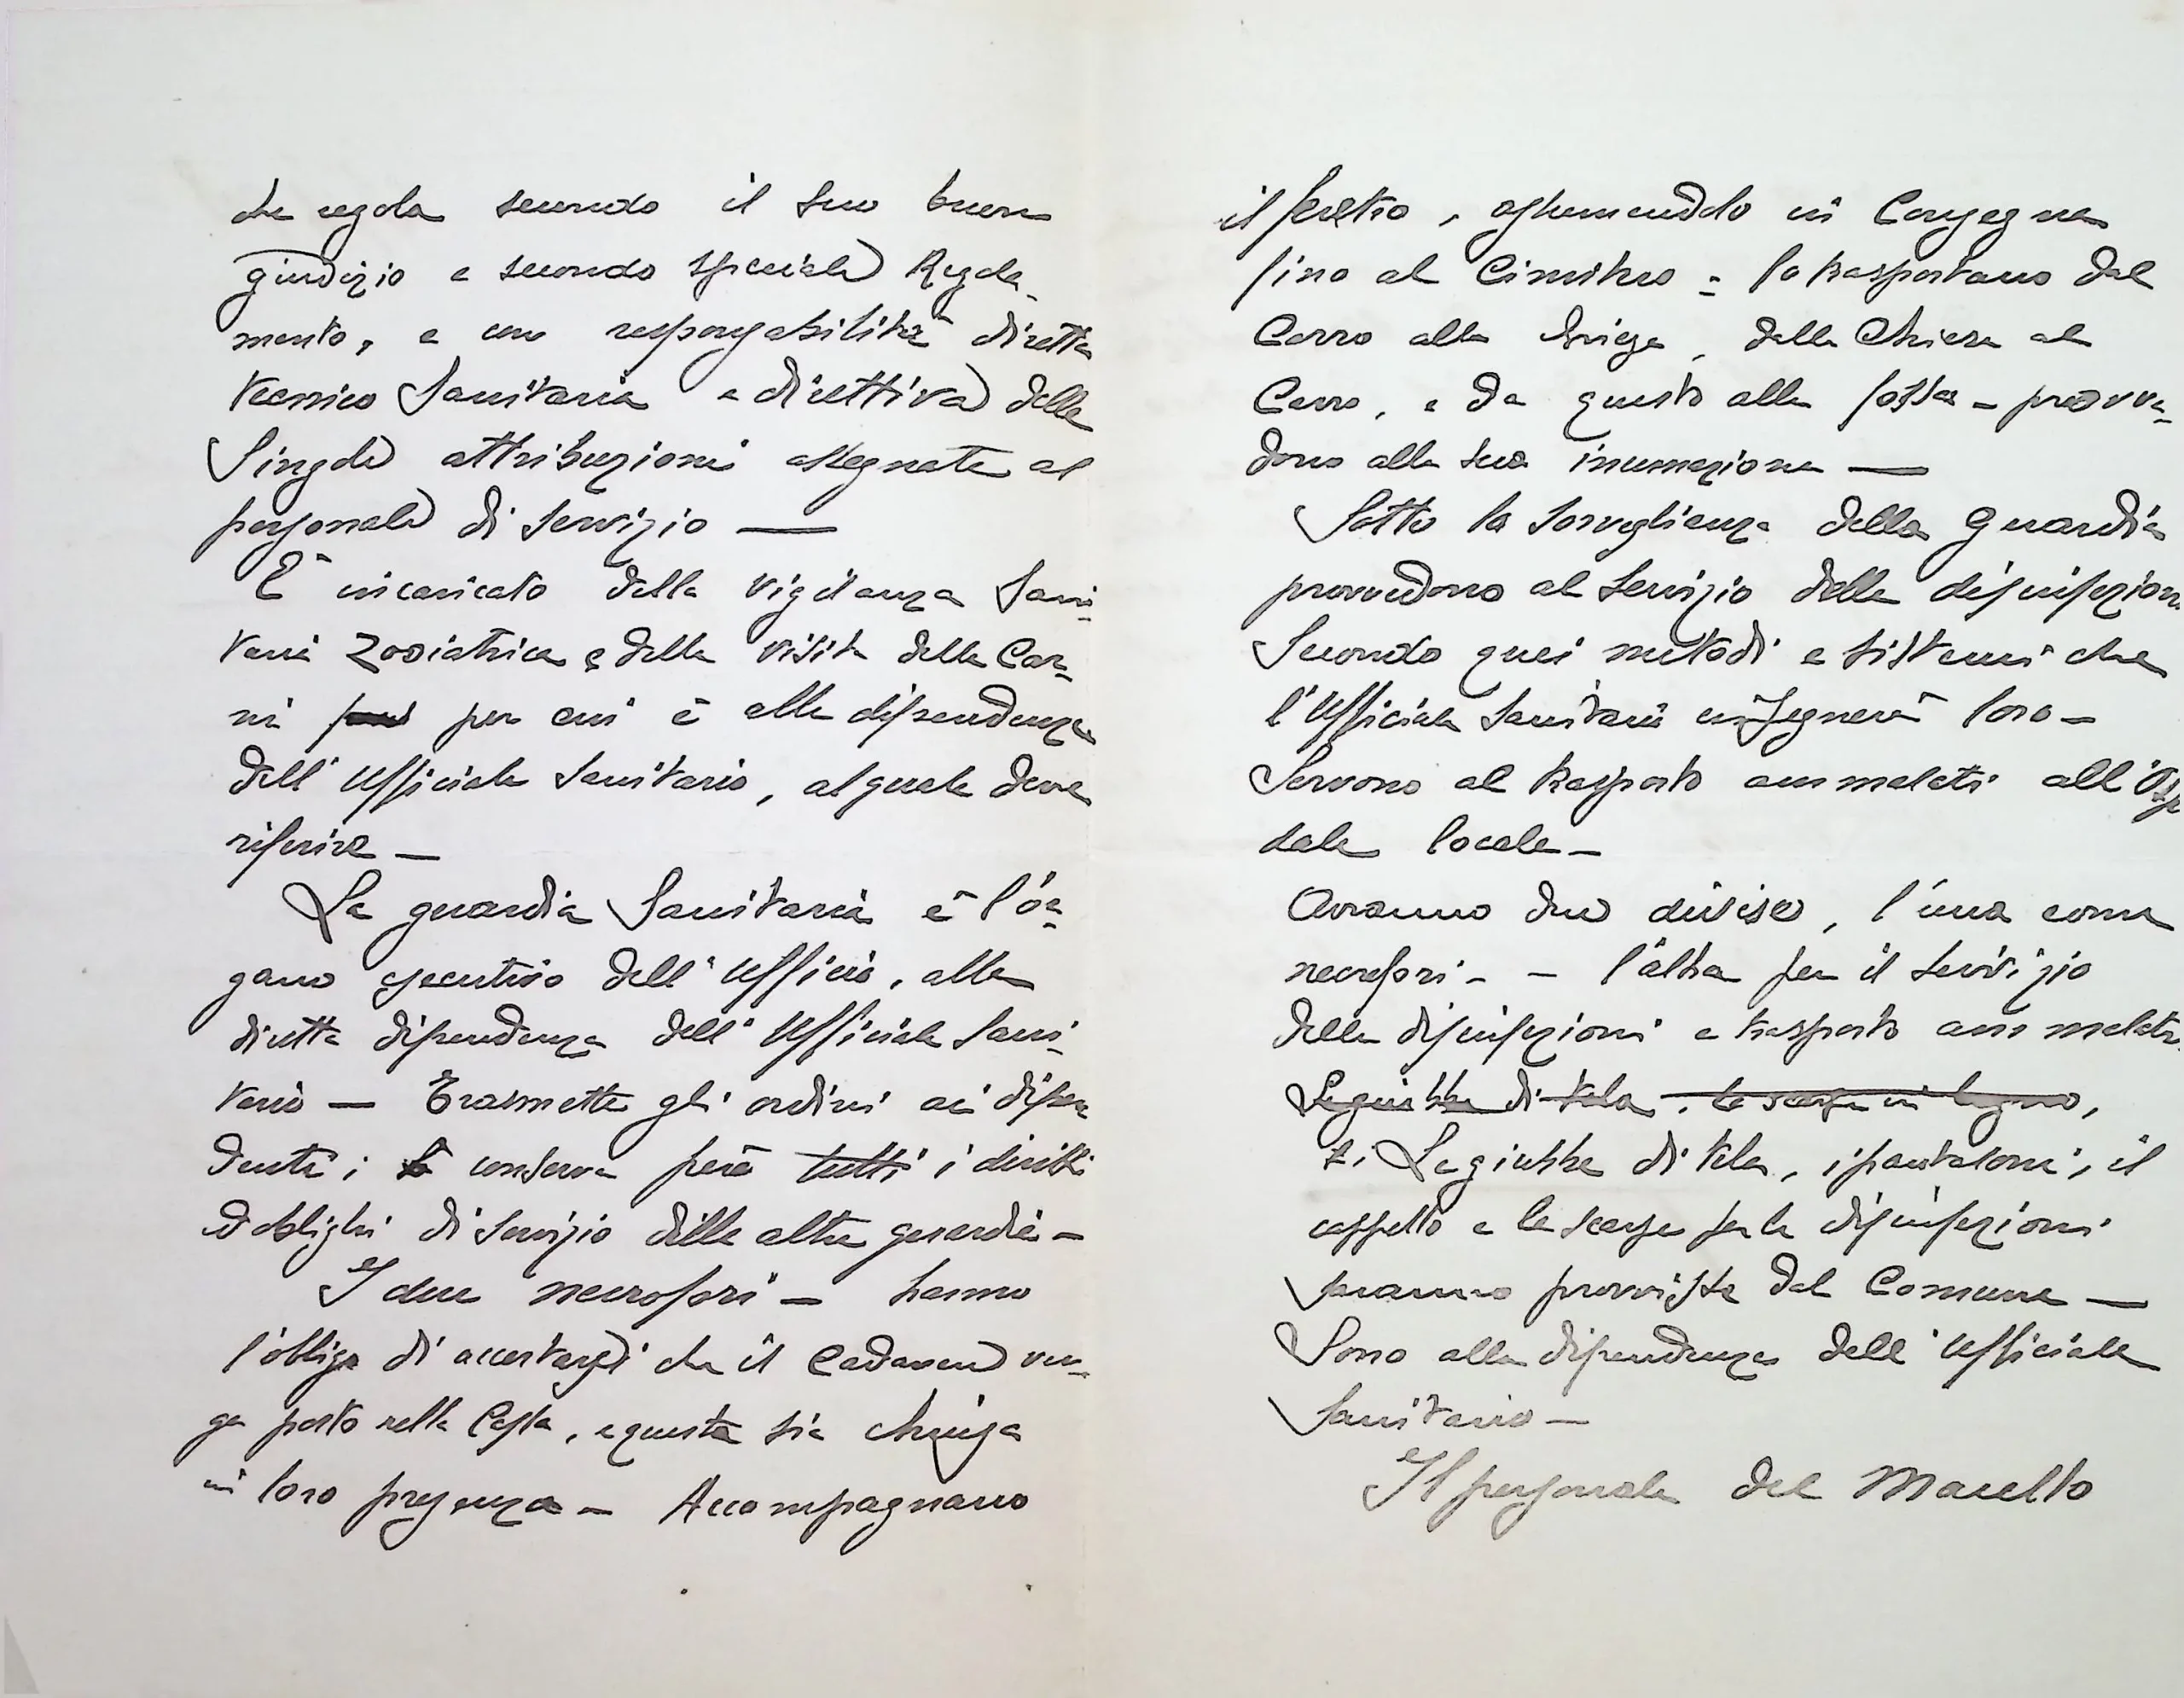 che regola secondo il suo buon
giudizio e secondo speciale Regola-
mento, e con responsabilità diretta
tecnico Sanitaria e direttiva delle
Singole attribuzioni assegnate al
personale di servizio —
E' incaricato della vigilanza Sani-
taria Zooiatrica e della visita delle Car-
ni per cui è alle dipendenze
dell'Ufficiale Sanitario, al quale deve
riferire —
La guardia Sanitaria è l'or-
gano esecutivo dell'Ufficio, alla
diretta dipendenza dell'Ufficiale Sani-
tario — Trasmette gli ordini ai dipen
denti; conserva però tutti i diritti
ed obblighi di servizio delle altre guardie —
I due necrofori — hanno
l'obbligo di accertarsi che il Cadavere ven-
ga posto nella Cassa, e questa sia chiusa
in loro presenza — Accompagnano
il feretro, assumendolo in Consegna
fino al Cimitero = lo trasportano dal
Carro alla Chiesa, dalla Chiesa al
Carro, e da questo alla fossa — provve-
dono alla sua inumazione —
Sotto la sorveglianza della Guardia
provvedono al servizio delle disinfezioni
Secondo quei metodi e sistemi che
l'Ufficiale Sanitario insegnerà loro —
Servono al trasporto ammalati all'Ospe
dale locale —
Avranno due divise, l'una come
necrofori — — l'altra per il servizio
delle disinfezioni e trasporto ammalati
Le giubbe di tela, le scarpe in legno,
Le giubbe di tela, i pantaloni, il
cappello e le scarpe per le disinfezioni
saranno provviste dal Comune —
Sono alla dipendenza dell'Ufficiale
Sanitario —
Il personale del Macello